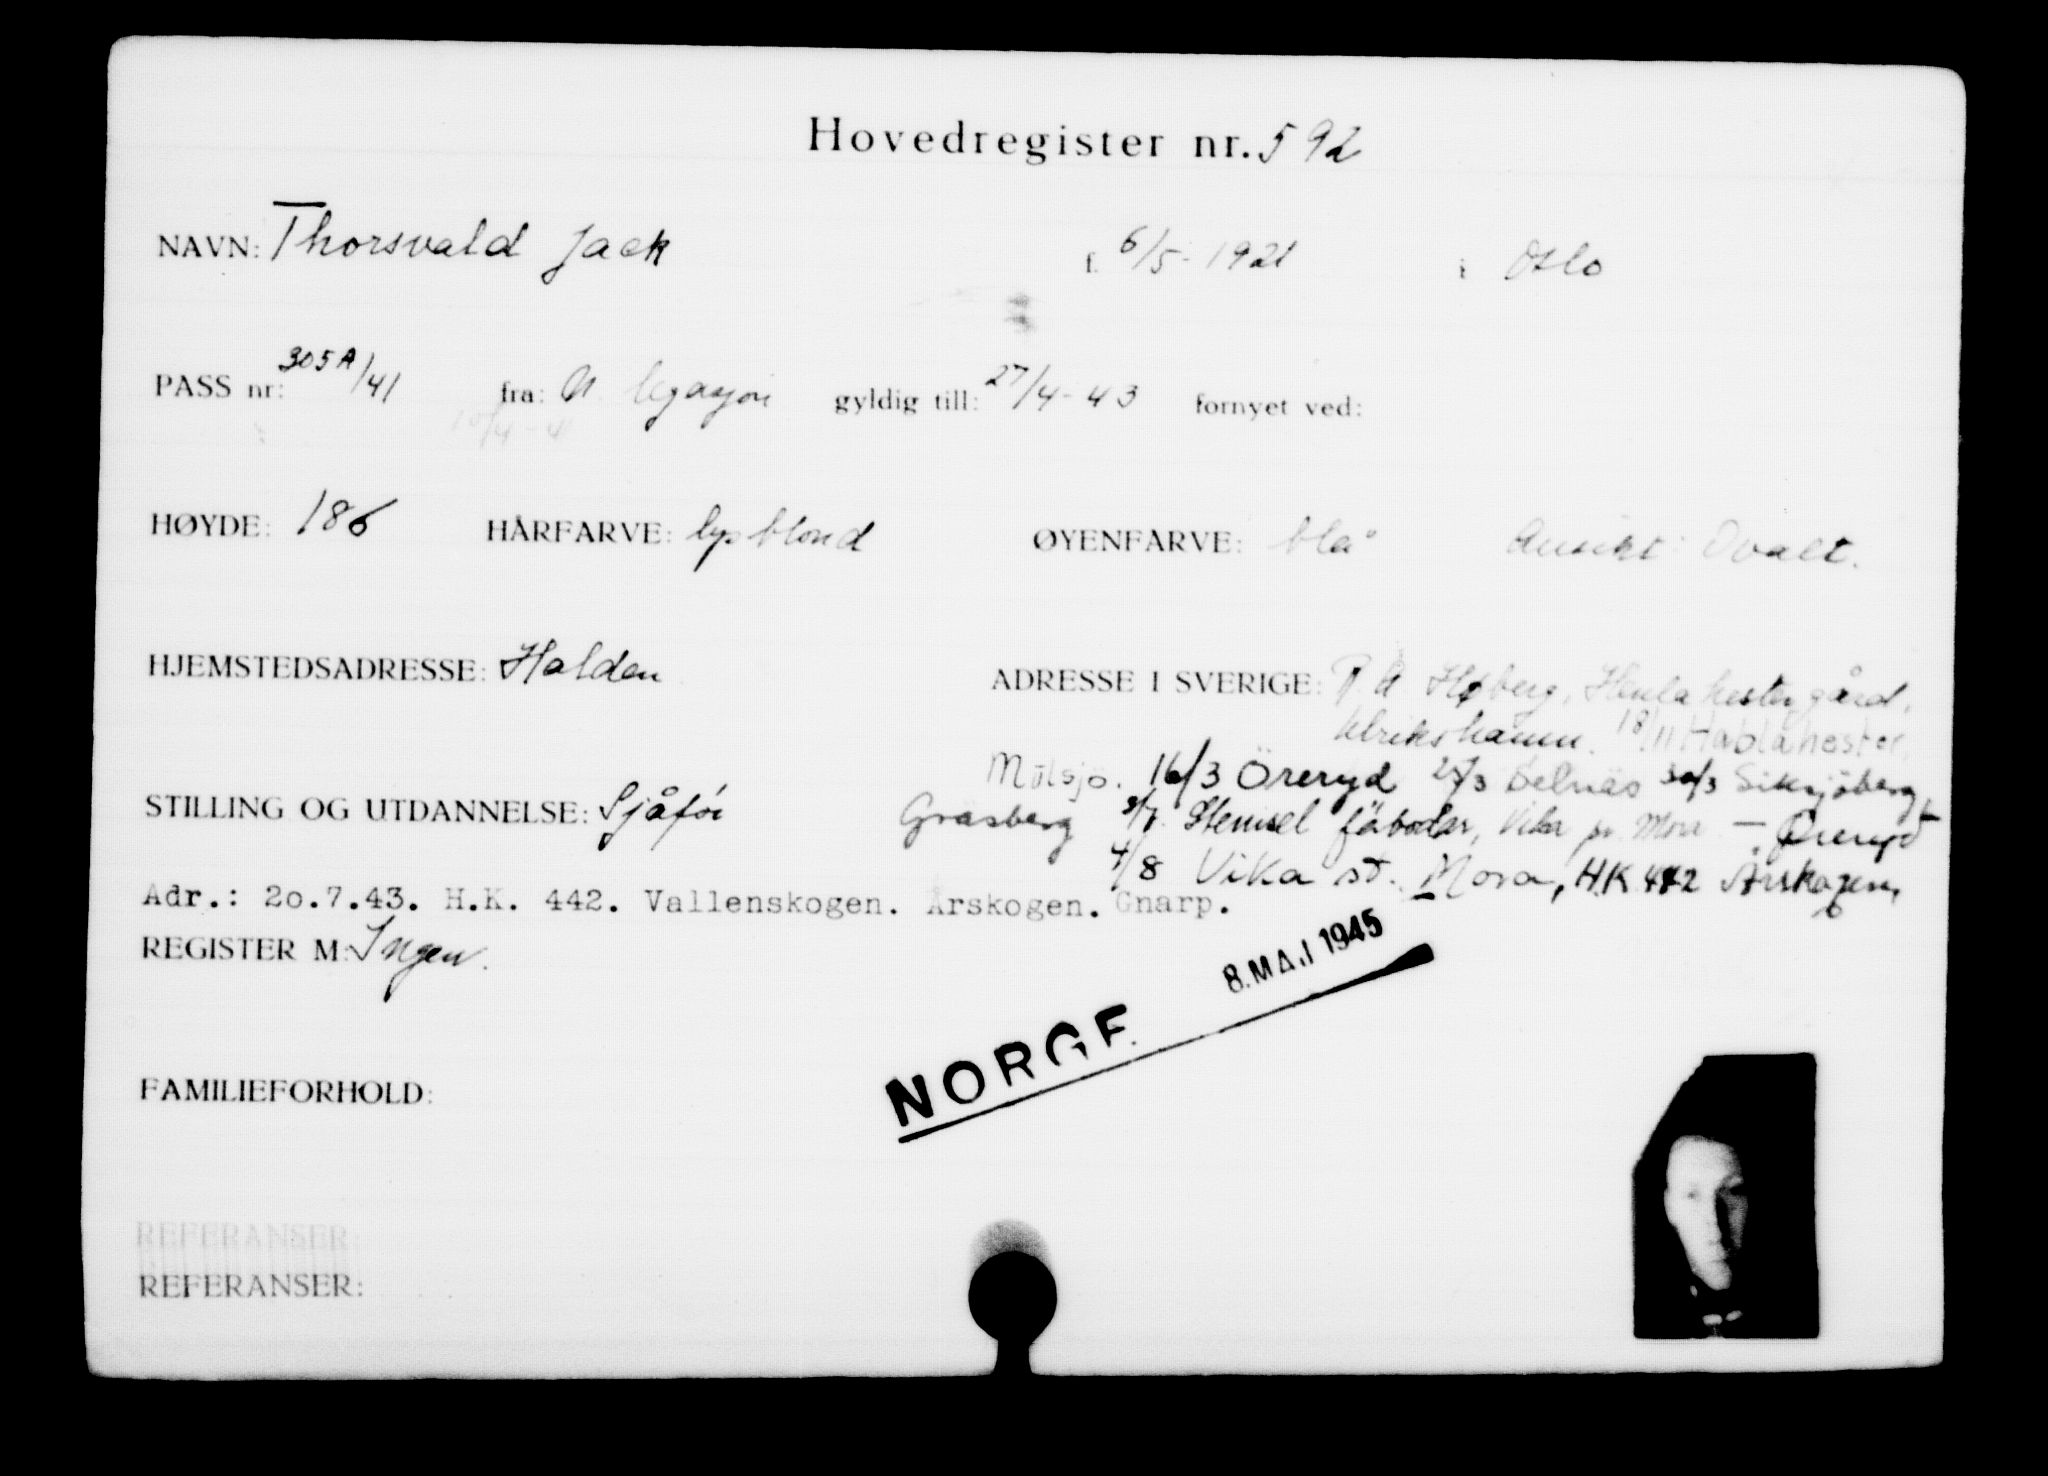 Hovedregister nr. 592
NAVN: Thorsvald Jack f. 6/5-1921 i Oslo
PASS nr: 305A/41 fra: N. legasjon gyldig till: 27/4-43 fornyet ved:
HØYDE: 186 HÅRFARVE: lys blond ØYENFARVE: blå Ansikt: Ovalt.
HJEMSTEDSADRESSE: Halden ADRESSE I SVERIGE: Høberg, gård,
Ulrikshamn. 18/11 Hablahester,
Mölsjö. 16/3 Öreryd 25/3 Delnäs 30/3 Siksjöberg
STILLING OG UTDANNELSE: Sjåfør Gräsberg fäbodar, Vika pr. Mora - Öreryd
4/8 Vika st. Mora, H.K. 442 Årskogen,
Adr.: 2o.7.43. H.K. 442. Vallenskogen. Årskogen. Gnarp.
REGISTER M: Ingen.
8. MAJ 1945
NORGE
FAMILIEFORHOLD:
REFERANSER:
REFERANSER: